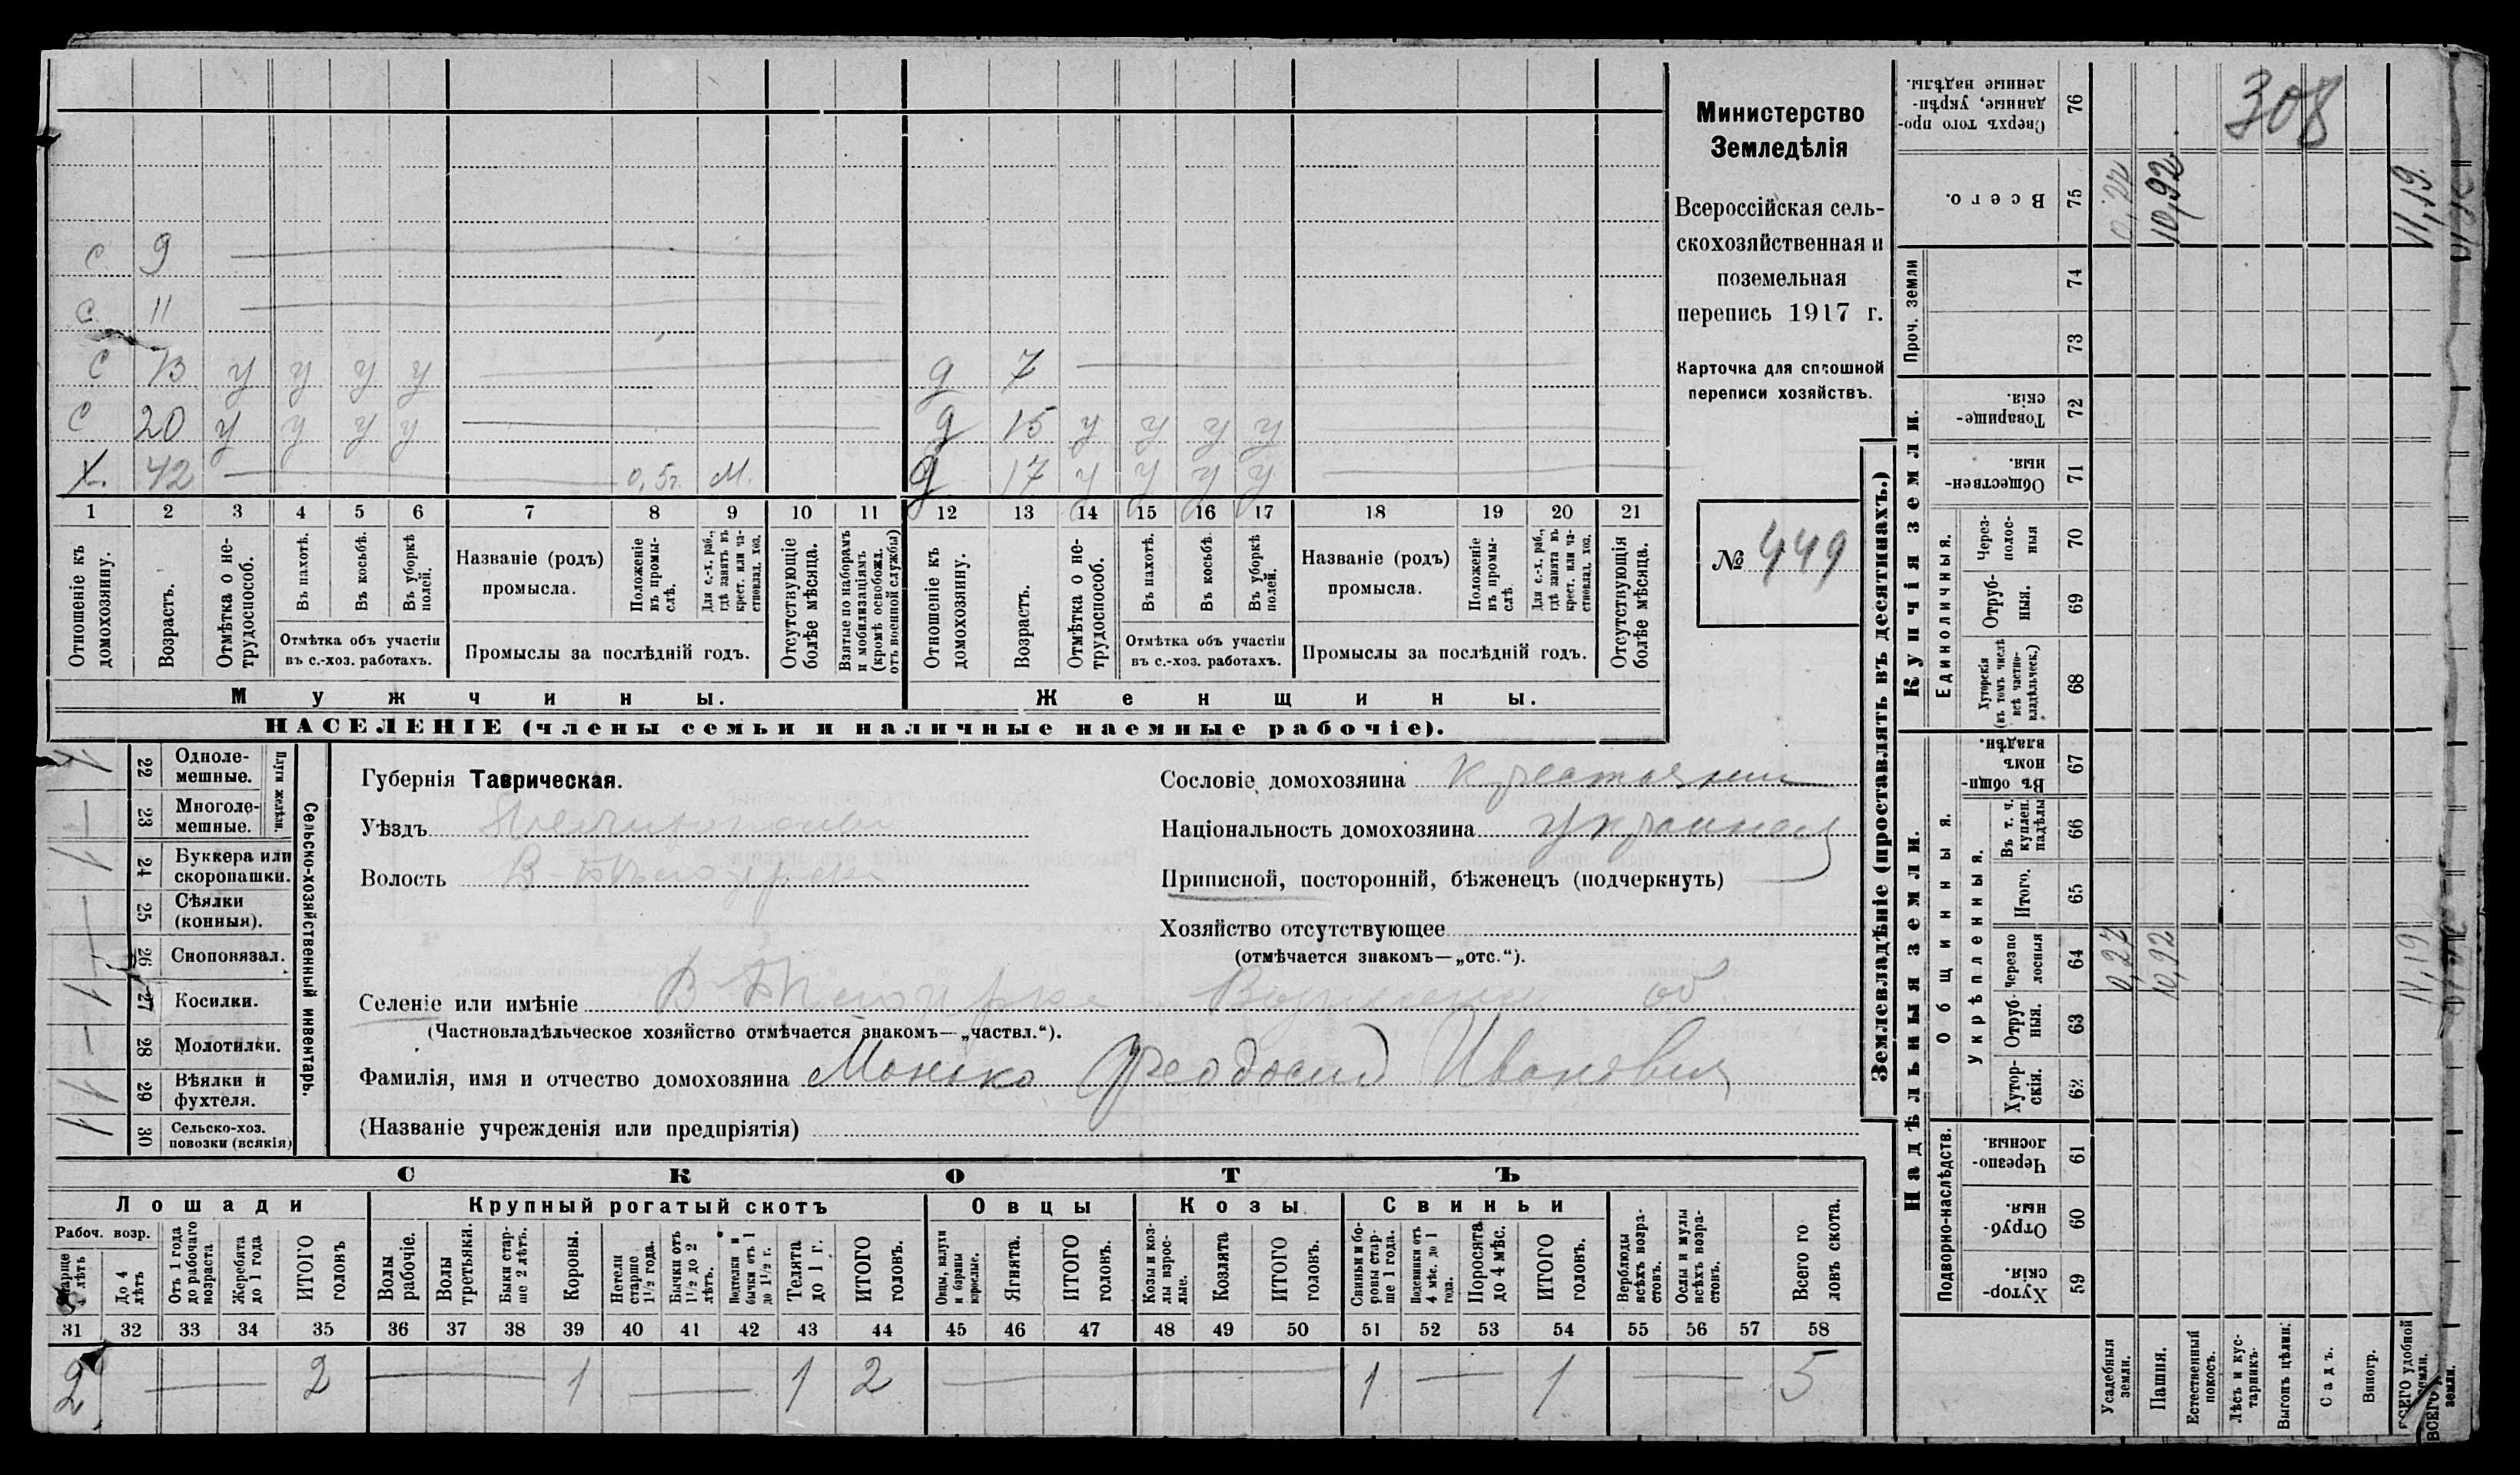 с 9
с 11
с 13 у у у у
с 20 у у у у
Х. 42 0,5г. М.
д 7
д 15 у у у у
д 17 у у у у
1 2 3 4 5 6 7 8 9 10 11 12 13 14 15 16 17 18 19 20 21
Отношеніе къ домохозяину.
Возрастъ.
Отмѣтка о не-трудоспособ.
Въ пахотѣ.
Въ косьбѣ.
Въ уборкѣ полей.
Отмѣтка объ участіи въ с.-хоз. работахъ.
Названіе (родъ) промысла.
Положеніе въ промы-слѣ.
Для с.-х. раб., гдѣ занятъ въ крест. или ча-стновлад. хоз.
Промыслы за послѣдній годъ.
Отсутствующіе болѣе мѣсяца.
Взятые по наборамъ и мобилизаціямъ (кромѣ освобожд. отъ военной службы)
Отношеніе къ домохозяину.
Возрастъ.
Отмѣтка о не-трудоспособ.
Въ пахотѣ.
Въ косьбѣ.
Въ уборкѣ полей.
Отмѣтка объ участіи въ с.-хоз. работахъ.
Названіе (родъ) промысла.
Положеніе въ промы-слѣ
Для с.-х. раб., гдѣ занята въ крест. или ча-стновлад. хоз.
Промыслы за послѣдній годъ.
Отсутствующія болѣе мѣсяца.
Мужчины. Женщины.
НАСЕЛЕНІЕ (члены семьи и наличные наемные рабочіе).
Министерство
Земледѣлія
Всероссійская сель-
скохозяйственная и
поземельная
перепись 1917 г.
Карточка для сплошной
переписи хозяйствъ.
№ 449
Сельско-хозяйственный инвентарь.
Плуги желѣзн.
22 Одноле-мешные. 1
23 Многоле-мешные. —
24 Буккера или скоропашки. 1
25 Сѣялки (конныя). —
26 Сноповязал. —
27 Косилки. 1
28 Молотилки. —
29 Вѣялки и фухтеля. 1
30 Сельско-хоз. повозки (всякія) 1
Губернія Таврическая.
Уѣздъ
Волость
Сословіе домохозяина крестьянин
Національность домохозяина украинец
Приписной, посторонній, бѣженецъ (подчеркнуть)
Хозяйство отсутствующее
(отмѣчается знакомъ—„отс.“).
Селеніе или имѣніе
(Частновладѣльческое хозяйство отмѣчается знакомъ—„частвл.“).
Фамилія, имя и отчество домохозяина Монько Феодосий Иванович
(Названіе учрежденія или предпріятія)
СКОТЪ
Лошади Крупный рогатый скотъ Овцы Козы Свиньи
Рабоч. возр.
Старше 4 лѣтъ
До 4 лѣтъ
Отъ 1 года до рабочаго возраста
Жеребята до 1 года
ИТОГО головъ
Волы рабочіе.
Волы третьяки.
Быки стар-ше 2 лѣтъ.
Коровы.
Нетели старше 1½ года.
Бычки отъ 1½ до 2 лѣтъ.
Подтелки и бычки отъ 1 до 1½ г.
Телята до 1 г.
ИТОГО головъ.
Овцы, валухи и бараны взрослые.
Ягнята.
ИТОГО головъ.
Козы и коз-лы взрос-лые.
Козлята
ИТОГО головъ.
Свиньи и бо-ровы стар-ше 1 года.
Подсвинки отъ 4 мѣс. до 1 года.
Поросята до 4 мѣс.
ИТОГО головъ.
Верблюды всѣхъ возра-стовъ.
Ослы и мулы всѣхъ возра-стовъ.
Всего го ловъ скота.
31 32 33 34 35 36 37 38 39 40 41 42 43 44 45 46 47 48 49 50 51 52 53 54 55 56 57 58
2 — 2 — 1 — 1 2 — 1 — 1 — 5
Землевладѣніе (проставлять въ десятинахъ.)
Купчія земли.
Надѣльныя земли.
Сверхъ того про-данные, укрѣп-ленные надѣлы. 76
308
Всего. 75 10,92 11,19
Проч. земли 74 73
Товарище-скія. 72
Обществен-ныя. 71
Единоличныя.
Через-полос-ныя 70
Отруб-ныя. 69
Хуторскія (въ томъ числѣ всѣ частно-владѣльческ.) 68
Общинныя.
Въ общи-номъ владѣн. 67
Укрѣпленныя.
Въ т. ч. куплен. надѣлы 66
Итого. 65
Черезпо лосныя 64 0,27 10,92 11,19
Отруб-ныя. 63
Хутор-скія. 62
Подворно-наслѣдств.
Черезпо-лосныя. 61
Отруб-ныя. 60
Хутор-скія. 59
Усадебныя земли.
Пашня.
Естественный покосъ.
Лѣсъ и кус-тарникъ.
Выгонъ цѣлин.
Садъ.
Виногр.
ВСЕГО удобной земли.
ВСЕГО земли.